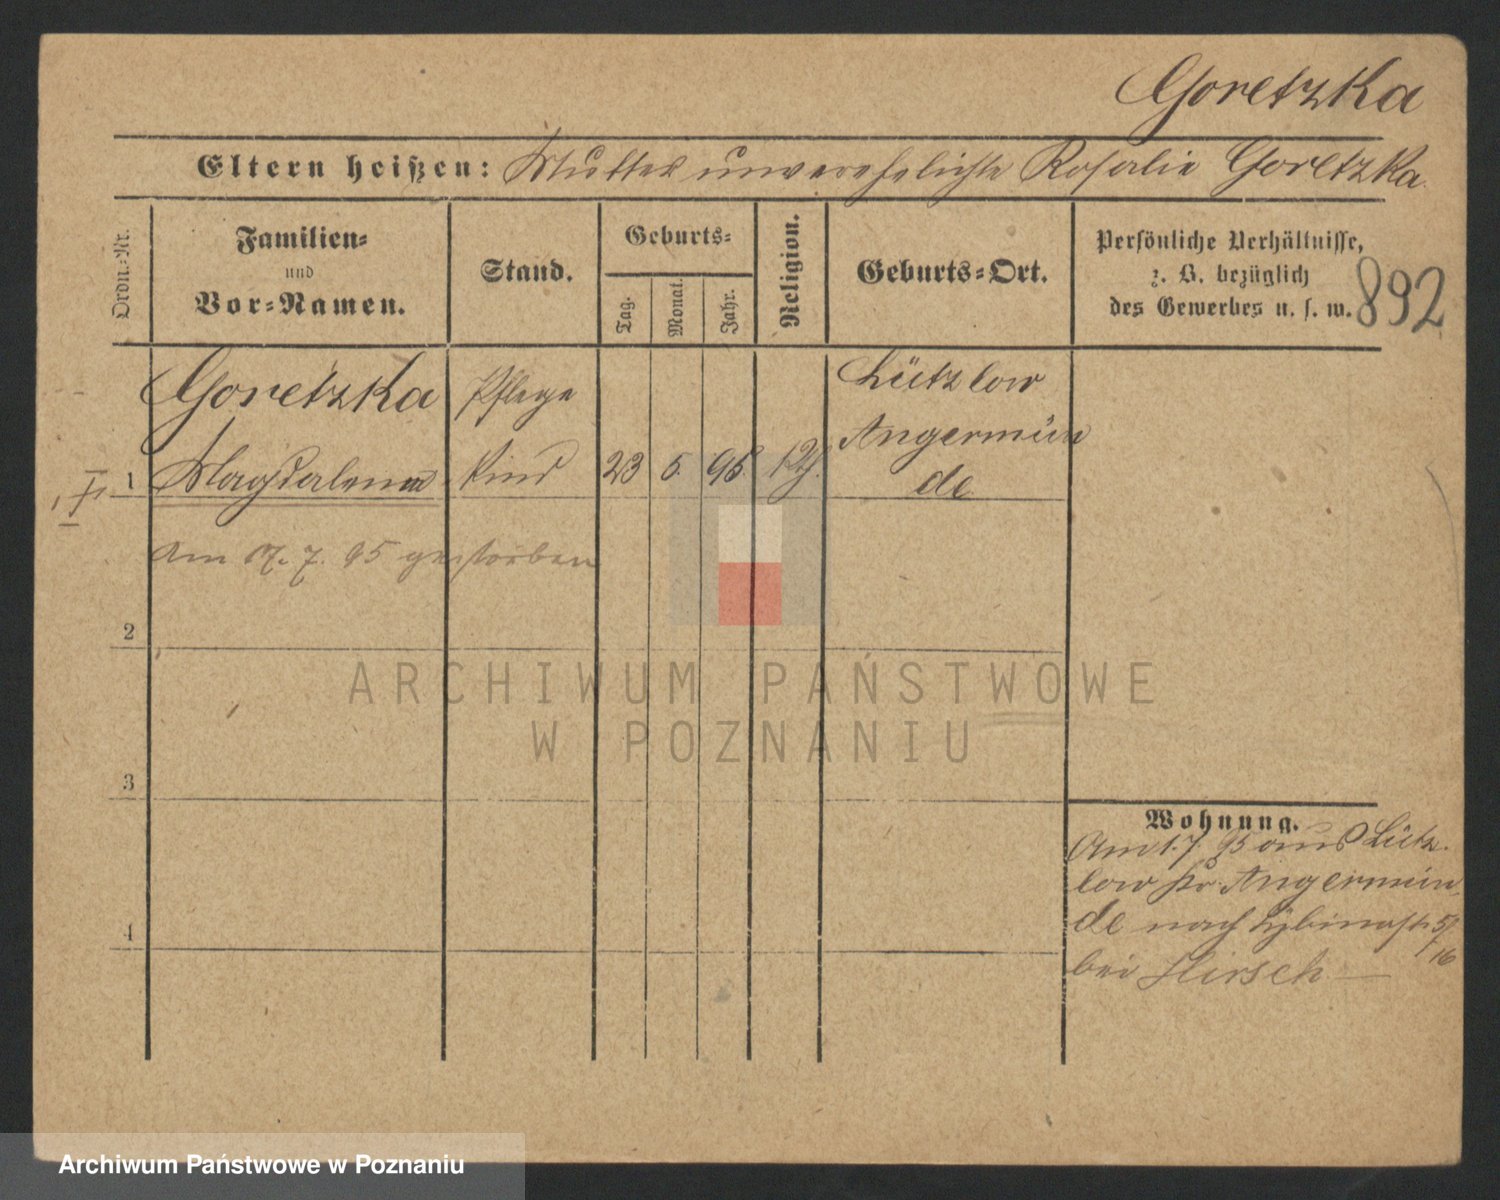 Goretzka
Eltern heißen: Mutter unverehelichte Rosalie Goretzka.
Ordn.-Nr.
Familien-
und
Vor-Namen.
Stand.
Geburts-
Tag.
Monat.
Jahr.
Religion.
Geburts-Ort.
Persönliche Verhältnisse,
z. B. bezüglich
des Gewerbes u. s. w.
892
Goretzka
Pflege
Lützlow
Angermün
1 Magdalena
Kind
23 5. 95.
de
Am 7. 95 gestorben
2
3
4
Wohnung.
Am 1. 7. 95 aus Lütz-
low Angermün-
de nach Zybinastr. 5/
16
bei Hirsch
ARCHIWUM PAŃSTWOWE
W POZNANIU
Archiwum Państwowe w Poznaniu